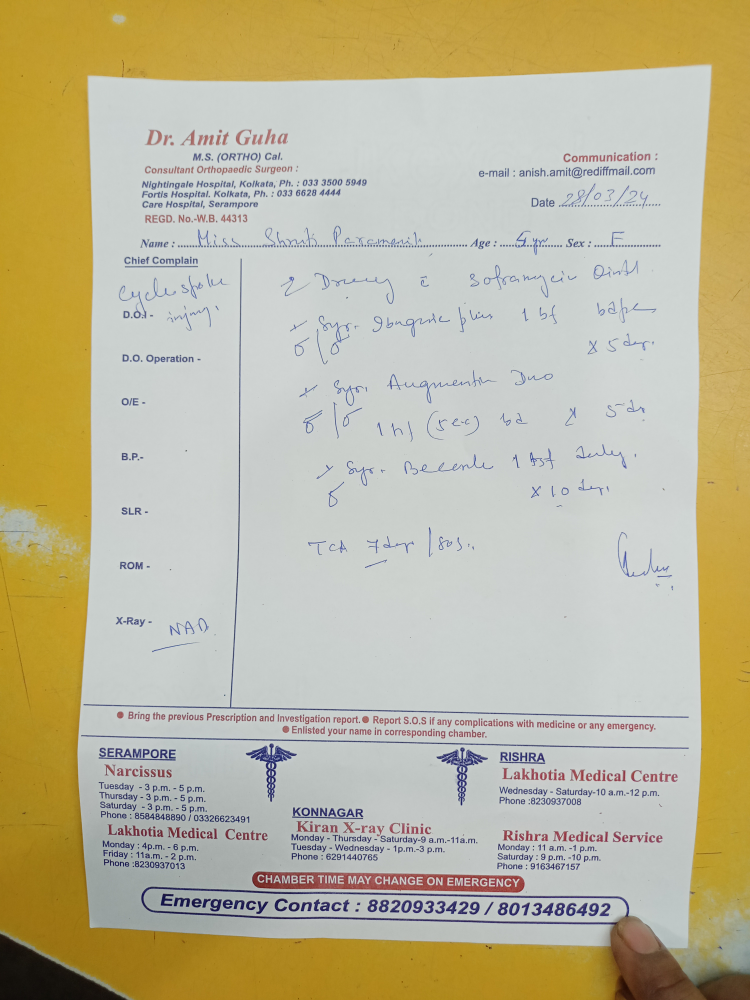 Dr. Amit Guha
M.S. (ORTHO) Cal.
Consultant Orthopaedic Surgeon :
Nightingale Hospital, Kolkata, Ph. : 033 3500 5949
Fortis Hospital. Kolkata, Ph. : 033 6628 4444
Care Hospital, Serampore
REGD. No.-W.B. 44313
Communication :
e-mail : anish.amit@rediffmail.com
Date 28/03/24
Name : Miss Age : yr Sex : F
Chief Complain
Cycle spoke
injury.
D.O.I -
D.O. Operation -
O/E -
B.P.-
SLR -
ROM -
X-Ray - NAD
Soframycin Oint
Syr. plus 1 tsf
x 5 day.
Syr. Augmentin Duo
1 tsf (5cc) bd x 5 d
Syr. 1 tsf daily.
x 10 day.
TCA 7 day / SOS.
● Bring the previous Prescription and Investigation report. ● Report S.O.S if any complications with medicine or any emergency.
● Enlisted your name in corresponding chamber.
SERAMPORE
Narcissus
Tuesday - 3 p.m. - 5 p.m.
Thursday - 3 p.m. - 5 p.m.
Saturday - 3 p.m. - 5 p.m.
Phone : 8584848890 / 03326623491
Lakhotia Medical Centre
Monday : 4p.m. - 6 p.m.
Friday : 11a.m. - 2 p.m.
Phone :8230937013
KONNAGAR
Kiran X-ray Clinic
Monday - Thursday - Saturday-9 a.m.-11a.m.
Tuesday - Wednesday - 1p.m.-3 p.m.
Phone : 6291440765
RISHRA
Lakhotia Medical Centre
Wednesday - Saturday-10 a.m.-12 p.m.
Phone :8230937008
Rishra Medical Service
Monday : 11 a.m. -1 p.m.
Saturday : 9 p.m. -10 p.m.
Phone : 9163467157
CHAMBER TIME MAY CHANGE ON EMERGENCY
Emergency Contact : 8820933429 / 8013486492